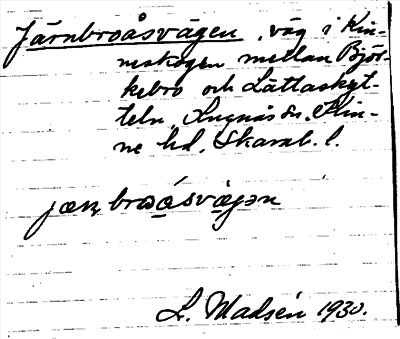 Järnbroåsvägen, väg i Kin-
neskogen mellan Björ-
kebro och Lättaskyt-
teln, Lugnås sn, Kin-
ne hd, Skarab. l.
L. Madsén 1930.